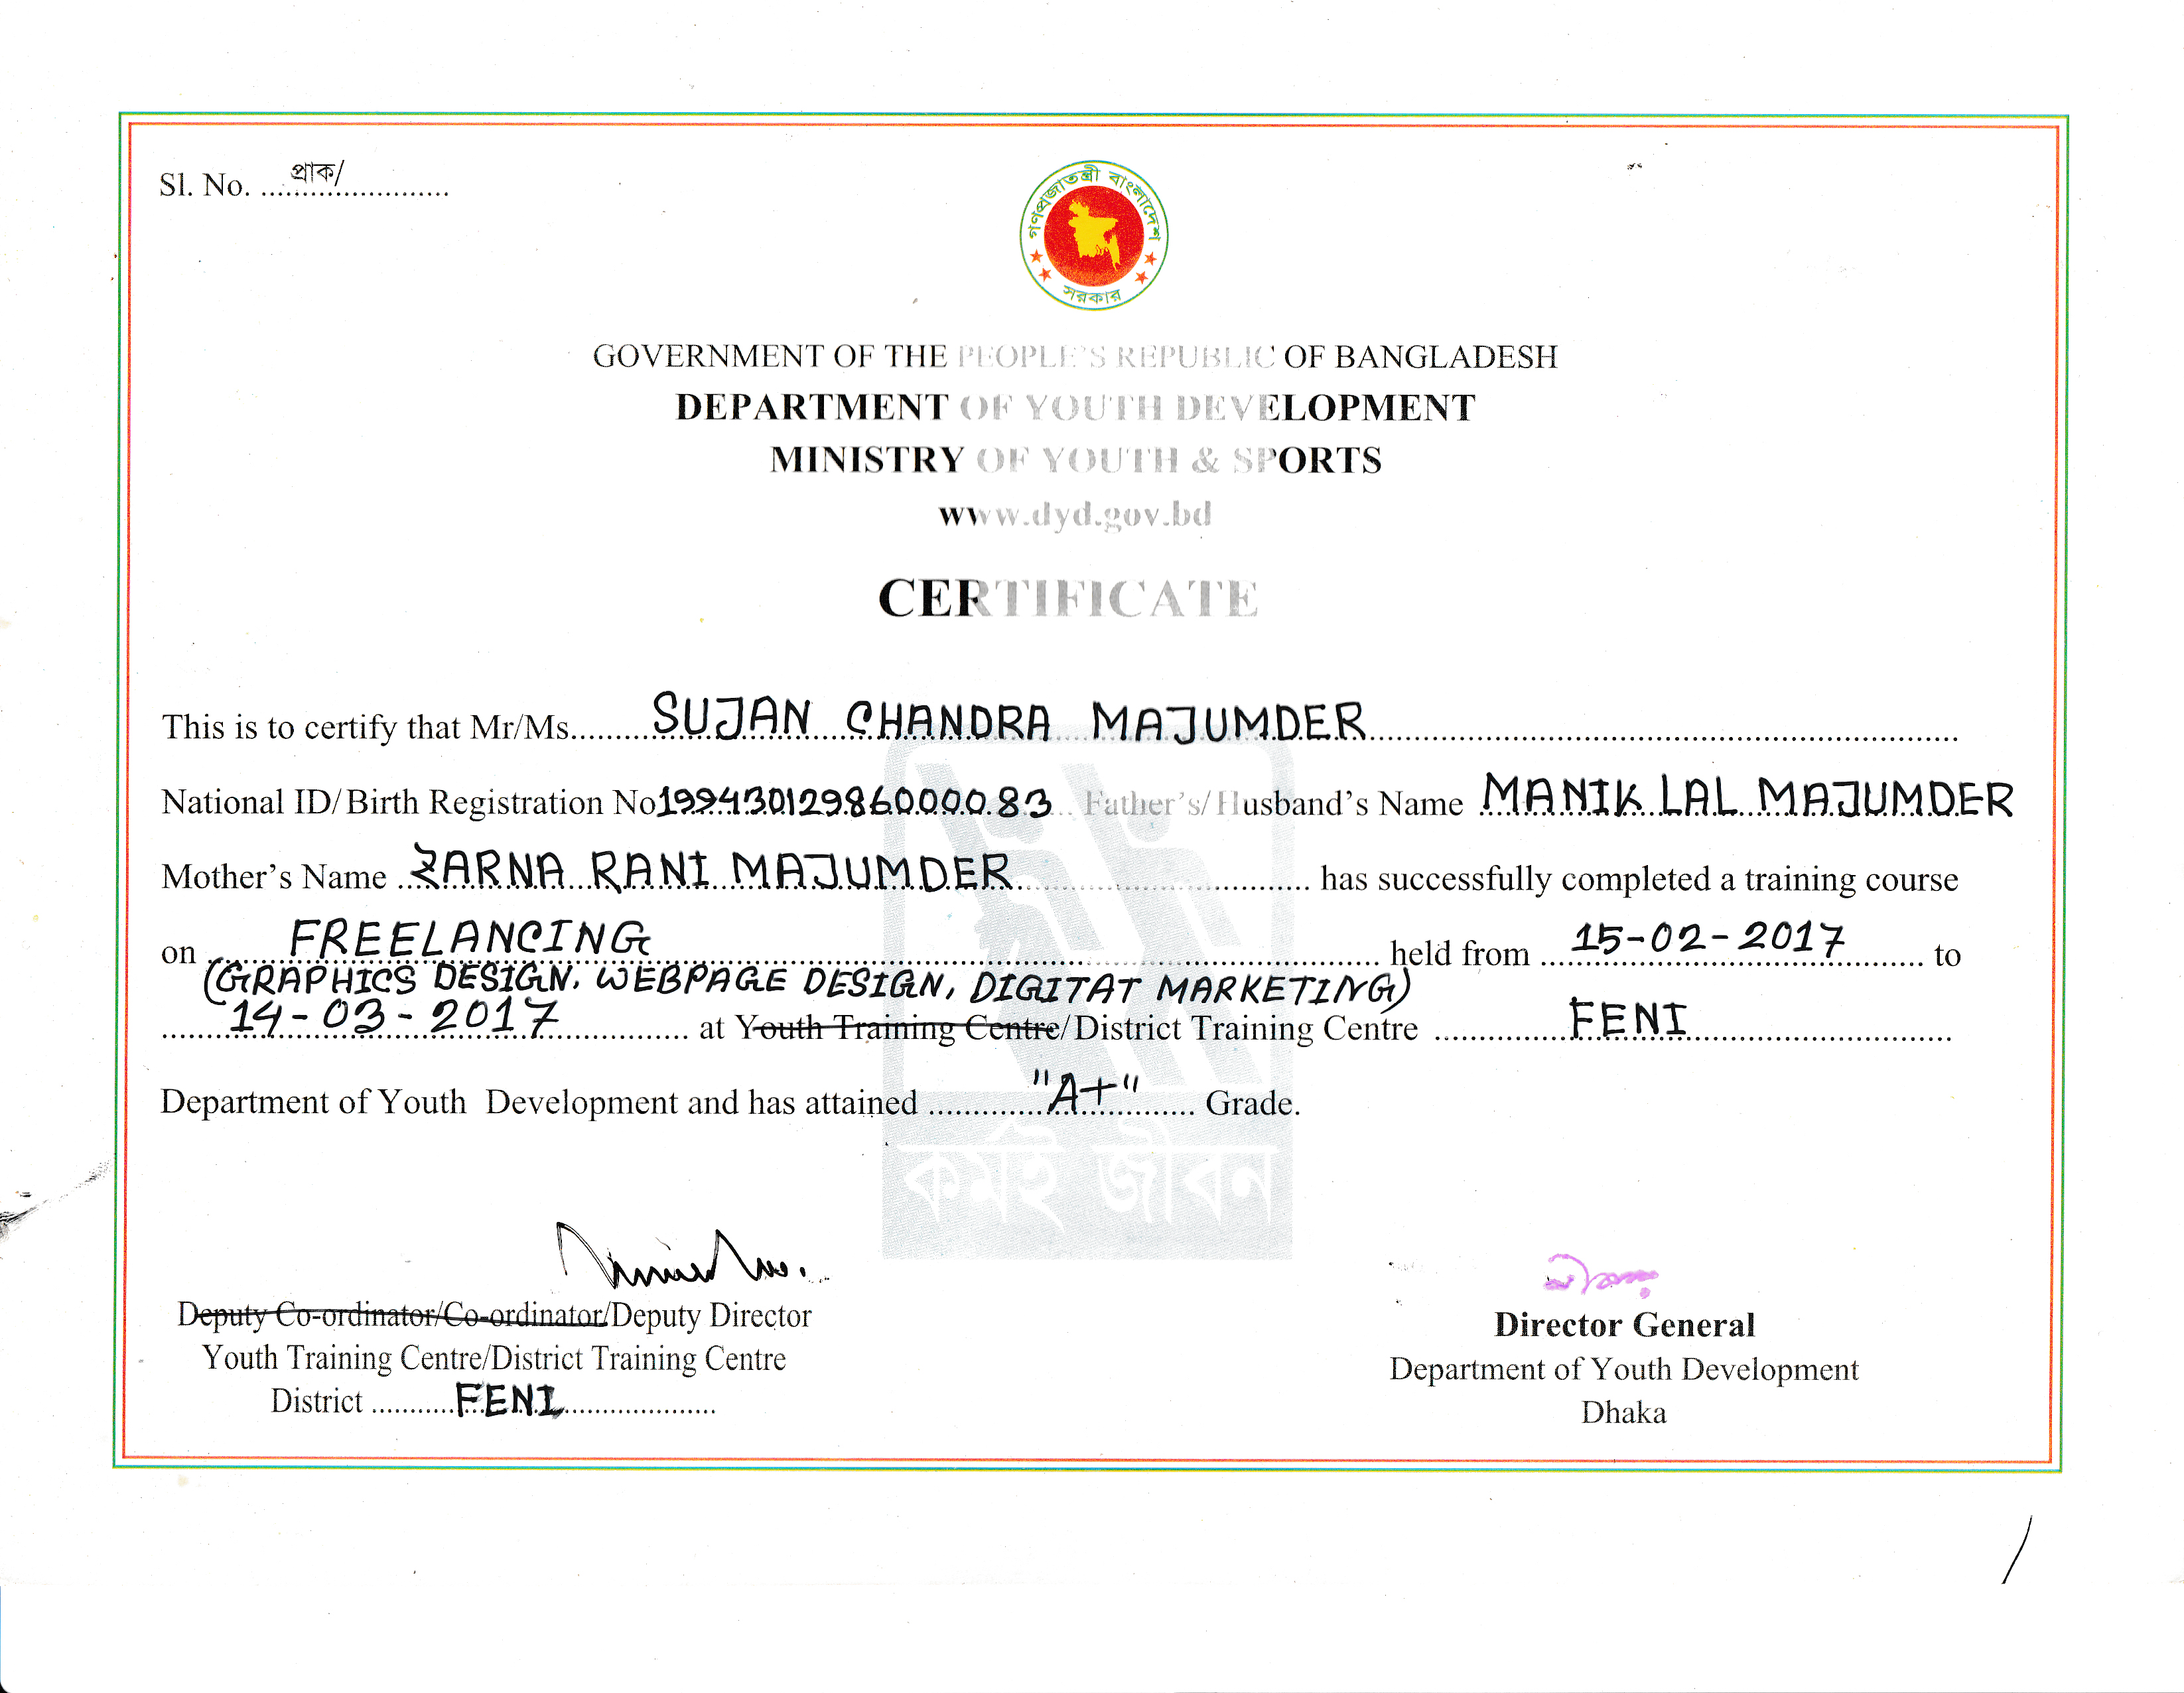 Sl. No. .... প্রাক/ ....
গণপ্রজাতন্ত্রী বাংলাদেশ
সরকার
GOVERNMENT OF THE PEOPLE'S REPUBLIC OF BANGLADESH
DEPARTMENT OF YOUTH DEVELOPMENT
MINISTRY OF YOUTH & SPORTS
www.dyd.gov.bd
CERTIFICATE
This is to certify that Mr/Ms. SUJAN CHANDRA MAJUMDER
National ID/Birth Registration No 19943012986000083 Father's/Husband's Name MANIK LAL MAJUMDER
Mother's Name ZARNA RANI MAJUMDER has successfully completed a training course
on FREELANCING held from 15-02-2017 to
(GRAPHICS DESIGN, WEBPAGE DESIGN, DIGITAT MARKETING)
14-03-2017 at Youth Training Centre/District Training Centre FENI
Department of Youth Development and has attained "A+" Grade.
কর্মই জীবন
Deputy Co-ordinator/Co-ordinator/Deputy Director
Youth Training Centre/District Training Centre
District FENI
Director General
Department of Youth Development
Dhaka